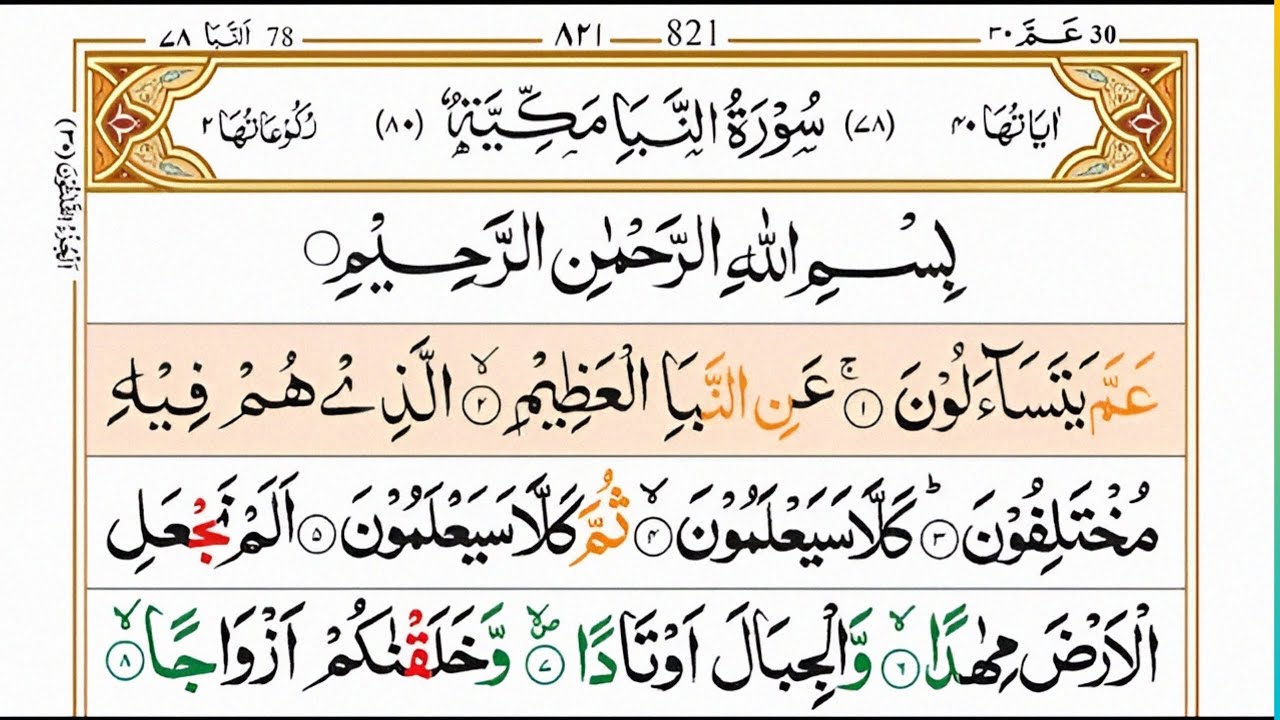 30 عَـمَّ ٣٠ 821 ٨٢١ 78 اَلنَّبَا ٧٨
اٰيَاتُهَا ٤٠ (٧٨) سُوْرَةُ النَّبَاِ مَكِّيَّةٌ (٨٠) رُكُوْعَاتُهَا ٢
اَلْجُزْءُ الثَّلٰثُوْنَ (٣٠)
بِسْمِ اللّٰهِ الرَّحْمٰنِ الرَّحِيْمِ ○
عَمَّ يَتَسَآءَلُوْنَ ۚ ١ عَنِ النَّبَاِ الْعَظِيْمِ ۙ ٢ الَّذِيْ هُمْ فِيْهِ
مُخْتَلِفُوْنَ ؕ ٣ كَلَّا سَيَعْلَمُوْنَ ۙ ٤ ثُمَّ كَلَّا سَيَعْلَمُوْنَ ٥ اَلَمْ نَجْعَلِ
الْاَرْضَ مِهٰدًا ۙ ٦ وَّالْجِبَالَ اَوْتَادًا ۪ۙ ٧ وَّخَلَقْنٰكُمْ اَزْوَاجًا ۙ ٨